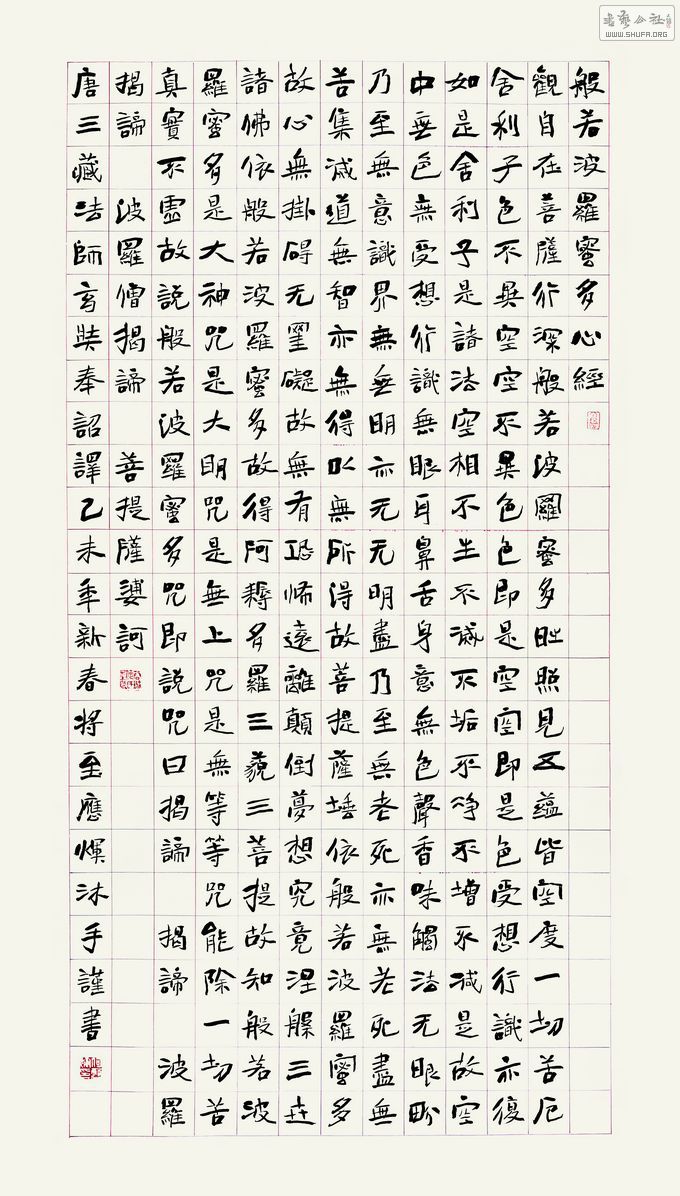 般若波羅蜜多心經
觀自在菩薩行深般若波羅蜜多時照見五蘊皆空度一切苦厄
舍利子色不異空空不異色色即是空空即是色受想行識亦復
如是舍利子是諸法空相不生不滅不垢不淨不增不減是故空
中無色無受想行識無眼耳鼻舌身意無色聲香味觸法无眼畍
乃至無意識界無無明亦无无明盡乃至無老死亦無老死盡無
苦集滅道無智亦無得以無所得故菩提薩埵依般若波羅蜜多
故心無掛碍无罣礙故無有恐怖遠離顛倒夢想究竟涅槃三世
諸佛依般若波羅蜜多故得阿耨多羅三藐三菩提故知般若波
羅蜜多是大神咒是大明咒是無上咒是無等等咒能除一切苦
真實不虛故說般若波羅蜜多咒即說咒曰揭諦 揭諦 波羅
揭諦 波羅僧揭諦 菩提薩婆訶
唐三藏法師玄奘奉詔譯乙未年新春將至應煇沐手謹書
書藝公社
WWW.SHUFA.ORG